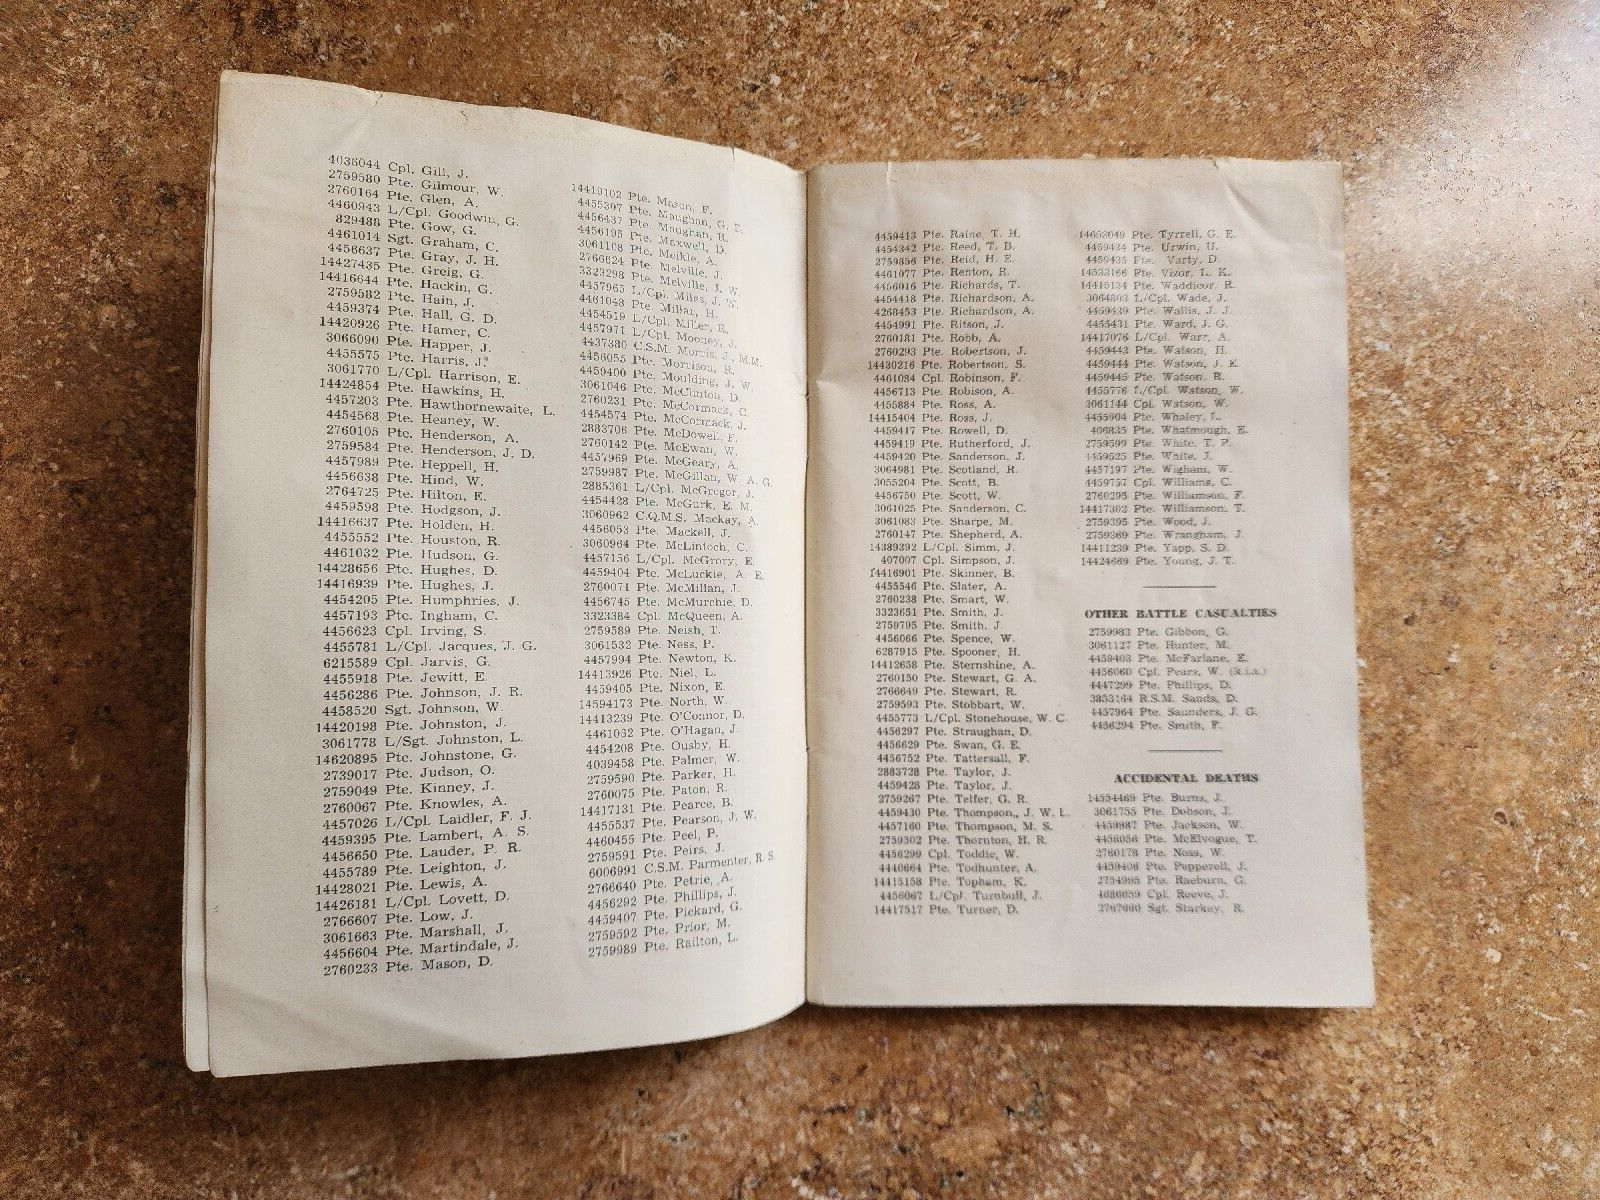 4036044 Cpl. Gill, J.
2759580 Pte. Gilmour, W.
2760164 Pte. Glen, A.
4460943 L/Cpl. Goodwin, G.
829488 Pte. Gow, G.
4461014 Sgt. Graham, C.
4456637 Pte. Gray, J. H.
14427435 Pte. Greig, G.
14416644 Pte. Hackin, G.
2759582 Pte. Hain, J.
4459374 Pte. Hall, G. D.
14420926 Pte. Hamer, C.
3066090 Pte. Happer, J.
4455575 Pte. Harris, J.
3061770 L/Cpl. Harrison, E.
14424854 Pte. Hawkins, H.
4457203 Pte. Hawthornewaite, L.
4454568 Pte. Heaney, W.
2760105 Pte. Henderson, A.
2759584 Pte. Henderson, J. D.
4457989 Pte. Heppell, H.
4456638 Pte. Hind, W.
2764725 Pte. Hilton, E.
4459598 Pte. Hodgson, J.
14416637 Pte. Holden, H.
4455552 Pte. Houston, R.
4461032 Pte. Hudson, G.
14428656 Pte. Hughes, D.
14416939 Pte. Hughes, J.
4454205 Pte. Humphries, J.
4457193 Pte. Ingham, C.
4456623 Cpl. Irving, S.
4455781 L/Cpl. Jacques, J. G.
6215589 Cpl. Jarvis, G.
4455918 Pte. Jewitt, E.
4456286 Pte. Johnson, J. R.
4458520 Sgt. Johnson, W.
14420198 Pte. Johnston, J.
3061778 L/Sgt. Johnston, L.
14620895 Pte. Johnstone, G.
2739017 Pte. Judson, O.
2759049 Pte. Kinney, J.
2760067 Pte. Knowles, A.
4457026 L/Cpl. Laidler, F. J.
4459395 Pte. Lambert, A. S.
4456650 Pte. Lauder, P. R.
4455789 Pte. Leighton, J.
14428021 Pte. Lewis, A.
14426181 L/Cpl. Lovett, D.
2766607 Pte. Low, J.
3061663 Pte. Marshall, J.
4456604 Pte. Martindale, J.
2760233 Pte. Mason, D.
14419102 Pte. Mason, F.
4455307 Pte. Maughan, G. E.
4456437 Pte. Maughan, R.
4456195 Pte. Maxwell, D.
3061108 Pte. Meikle, A.
2766624 Pte. Melville, J.
3323298 Pte. Melville, J. W.
4457965 L/Cpl. Miles, J. W.
4461048 Pte. Millar, H.
4454519 L/Cpl. Miller, R.
4457971 L/Cpl. Mooney, J.
4437380 C.S.M. Morris, J., M.M.
4456055 Pte. Morrison, R.
4459400 Pte. Moulding, J. W.
3061046 Pte. McClinton, D.
2760231 Pte. McCormack, C.
4454574 Pte. McCormack, J.
2883706 Pte. McDowell, F.
2760142 Pte. McEwan, W.
4457969 Pte. McGeary, A.
2759987 Pte. McGillan, W. A. G.
2885361 L/Cpl. McGregor, J.
4454428 Pte. McGurk, E. M.
3060962 C.Q.M.S. Mackay, A.
4456053 Pte. Mackell, J.
3060964 Pte. McLintoch, C.
4457156 L/Cpl. McGrory, E.
4459404 Pte. McLuckie, A. E.
2760071 Pte. McMillan, J.
4456745 Pte. McMurchie, D.
3323384 Cpl. McQueen, A.
2759589 Pte. Neish, T.
3061532 Pte. Ness, P.
4457994 Pte. Newton, K.
14413926 Pte. Niel, L.
4459405 Pte. Nixon, E.
14594173 Pte. North, W.
14413239 Pte. O'Connor, D.
4461062 Pte. O'Hagan, J.
4454208 Pte. Ousby, H.
4039458 Pte. Palmer, W.
2759590 Pte. Parker, H.
2760075 Pte. Paton, R.
14417131 Pte. Pearce, B.
4455537 Pte. Pearson, J. W.
4460455 Pte. Peel, P.
2759591 Pte. Peirs, J.
6006991 C.S.M. Parmenter, R. S.
2766640 Pte. Petrie, A.
4456292 Pte. Phillips, J.
4459407 Pte. Pickard, G.
2759592 Pte. Prior, M.
2759989 Pte. Railton, L.
4459413 Pte. Raine, T. H.
4454342 Pte. Reed, T. B.
2759356 Pte. Reid, H. E.
4461077 Pte. Renton, R.
4456016 Pte. Richards, T.
4454418 Pte. Richardson, A.
4268453 Pte. Richardson, A.
4454991 Pte. Ritson, J.
2760181 Pte. Robb, A.
2760293 Pte. Robertson, J.
14430216 Pte. Robertson, S.
4461084 Cpl. Robinson, F.
4456713 Pte. Robison, A.
4455884 Pte. Ross, A.
14415404 Pte. Ross, J.
4459417 Pte. Rowell, D.
4459419 Pte. Rutherford, J.
4459420 Pte. Sanderson, J.
3064981 Pte. Scotland, R.
3055204 Pte. Scott, B.
4456750 Pte. Scott, W.
3061025 Pte. Sanderson, C.
3061083 Pte. Sharpe, M.
2760147 Pte. Shepherd, A.
14389392 L/Cpl. Simm, J.
407007 Cpl. Simpson, J.
14416901 Pte. Skinner, B.
4455546 Pte. Slater, A.
2760238 Pte. Smart, W.
3323651 Pte. Smith, J.
2759795 Pte. Smith, J.
4456066 Pte. Spence, W.
6287915 Pte. Spooner, H.
14412658 Pte. Sternshine, A.
2760150 Pte. Stewart, G. A.
2766649 Pte. Stewart, R.
2759593 Pte. Stobbart, W.
4455773 L/Cpl. Stonehouse, W. C.
4456297 Pte. Straughan, D.
4456629 Pte. Swan, G. E.
4456752 Pte. Tattersall, F.
2883728 Pte. Taylor, J.
4459428 Pte. Taylor, J.
2759267 Pte. Telfer, G. R.
4459430 Pte. Thompson,, J. W. L.
4457160 Pte. Thompson, M. S.
2759302 Pte. Thornton, H. R.
4456299 Cpl. Toddie, W.
4440664 Pte. Todhunter, A.
14415158 Pte. Topham, K.
4456067 L/Cpl. Turnbull, J.
14417517 Pte. Turner, D.
14653049 Pte. Tyrrell, G. E.
4459434 Pte. Urwin, U.
4459435 Pte. Varty, D.
14533166 Pte. Vizor, L. K.
14415134 Pte. Waddicor, R.
3064803 L/Cpl. Wade, J.
4459439 Pte. Wallis, J. J.
4455431 Pte. Ward, J. G.
14417076 L/Cpl. Warr, A.
4459443 Pte. Watson, H.
4459444 Pte. Watson, J. E.
4459445 Pte. Watson, R.
4455776 L/Cpl. Watson, W.
3061144 Cpl. Watson, W.
4455904 Pte. Whaley, L.
406835 Pte. Whatmough, E.
2759599 Pte. White, T. P.
4459525 Pte. White, J.
4457197 Pte. Wigham, W.
4459757 Cpl. Williams, C.
2760295 Pte. Williamson, F.
14417302 Pte. Williamson, T.
2759395 Pte. Wood, J.
2759369 Pte. Wrangham, J.
14411239 Pte. Yapp, S. D.
14424669 Pte. Young, J. T.
OTHER BATTLE CASUALTIES
2759983 Pte. Gibbon, G.
3061127 Pte. Hunter, M.
4459403 Pte. McFarlane, E.
4456060 Cpl. Pears, W. (k.i.a.)
4447299 Pte. Phillips, D.
3853164 R.S.M. Sands, D.
4457964 Pte. Saunders, J. G.
4456294 Pte. Smith, F.
ACCIDENTAL DEATHS
14554469 Pte. Burns, J.
3061755 Pte. Dobson, J.
4459987 Pte. Jackson, W.
4456056 Pte. McElvogue, T.
2760178 Pte. Ness, W.
4459406 Pte. Pepperell, J.
2754905 Pte. Raeburn, G.
4686659 Cpl. Reeve, J.
2767660 Sgt. Starkey, R.